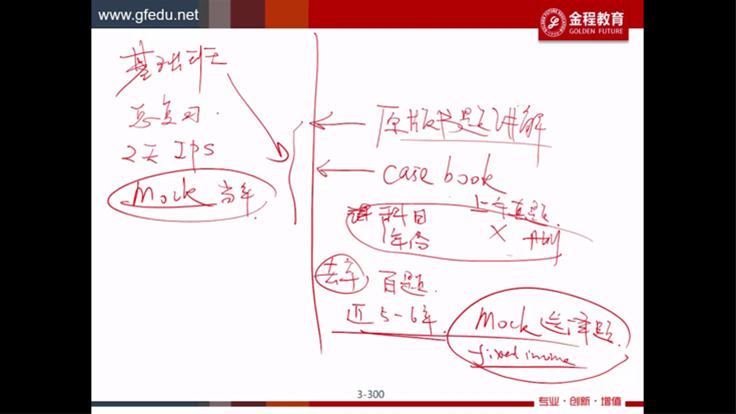 www.gfedu.net
金程教育
GOLDEN FUTURE
基础班
总复习
2天 IPS
Mock 当年
原版书题讲解
case book
科目
年份
上午真题
X
去年 百题
近5-6年
Mock 选择题
fixed income
3-300
专业·创新·增值